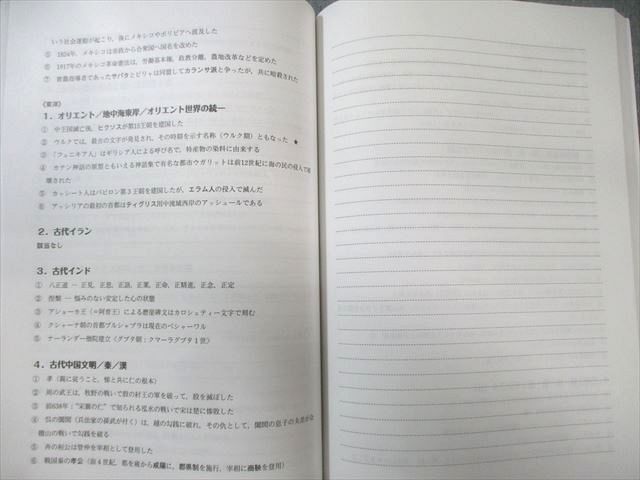 いう社会運動が起こり，後にメキシコやボリビアへ波及した
⑤ 1824年，メキシコは帝政から合衆国へ国名を改めた
⑥ 1917年のメキシコ革命憲法は，労働基本権，政教分離，農地改革などを定めた
⑦ 農民指導者であったサパタとビリャは同盟してカランサ派と争ったが，共に暗殺された
《東洋》
1．オリエント／地中海東岸／オリエント世界の統一
① 中王国滅亡後，ヒクソスが第15王朝を建国した
② ウルクでは，最古の文字が発見され，その時期を示す名称（ウルク期）ともなった ★
③ 「フェニキア人」はギリシア人による呼び名で，特産物の染料に由来する
④ カナン神話の原型ともいえる神話集で有名な都市ウガリットは前12世紀に海の民の侵入で
壊された
⑤ カッシート人はバビロン第3王朝を建国したが，エラム人の侵入で滅んだ
⑥ アッシリアの最初の首都はティグリス川中流域西岸のアッシュールである
2．古代イラン
該当なし
3．古代インド
① 八正道 ― 正見，正思，正語，正業，正命，正精進，正念，正定
② 涅槃 ― 悩みのない安定した心の状態
③ アショーカ王（＝阿育王）による磨崖碑文はカロシュティー文字で刻む
④ クシャーナ朝の首都プルシャプラは現在のペシャーワル
⑤ ナーランダー僧院建立〈グプタ朝：クマーラグプタ1世〉
4．古代中国文明／秦／漢
① 孝（親に従うこと，悌と共に仁の根本）
② 周の武王は，牧野の戦いで殷の紂王の軍を破って，殷を滅ぼした
③ 前638年："宋襄の仁"で知られる泓水の戦いで宋は楚に惨敗した
④ 呉の闔閭（兵法家の孫武が付く）は，越の勾践に破れ，その仇として，闔閭の息子の夫差が
椒山の戦いで勾践を破る
⑤ 斉の桓公は管仲を宰相として登用した
⑥ 戦国秦の孝公（前4世紀，都を雍から咸陽に，郡県制を施行，宰相に商鞅を登用）